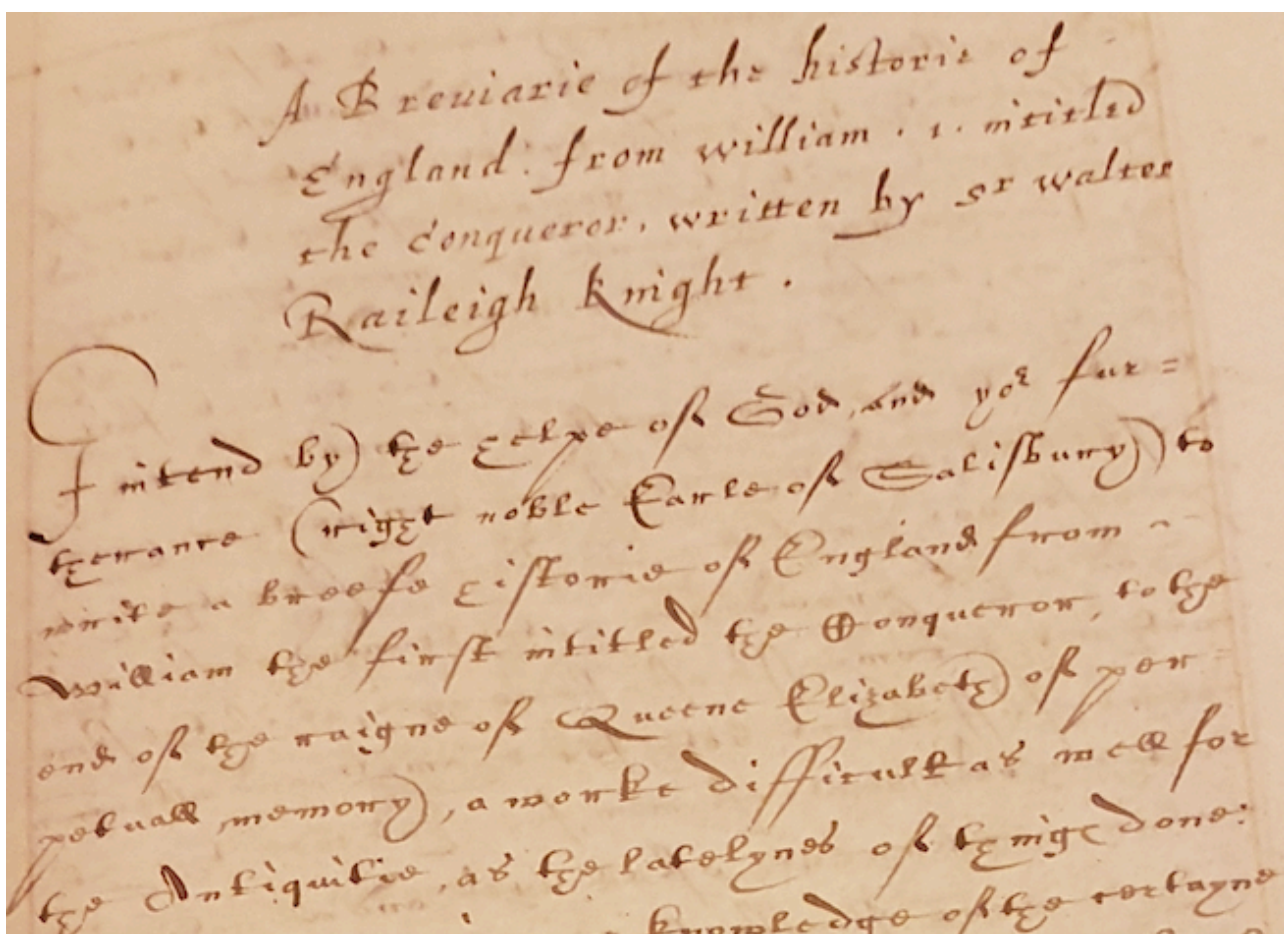 A Breuiarie of the historie of
England. from william . 1. intitled
the Conqueror, written by sr walter
Raileigh knight .
I intend by the helpe of God, and yor fur=
therance (right noble Earle of Salisbury) to
write a breefe historie of England from
William the first intitled the Conqueror, to the
end of the raigne of Queene Elizabeth of per=
petuall memory, a worke difficult as well for
the Antiquitie, as the latelynes of things done:
knowledge of the certayne